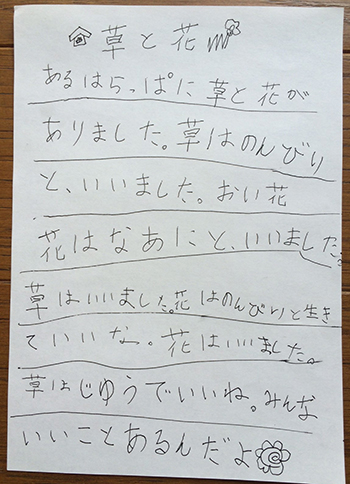 草と花
あるはらっぱに草と花が
ありました。草はのんびり
と、いいました。おい花
花はなあにと、いいました。
草はいいました。花はのんびりと生き
ていいな。花はいいました。
草はじゆうでいいね。みんな
いいことあるんだよ